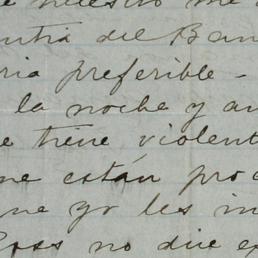 e nuestro me
ntia del Ban
ria preferible -
la noche y an
e tiene violent
ne están pro
ne yo les in
Ross no dice e